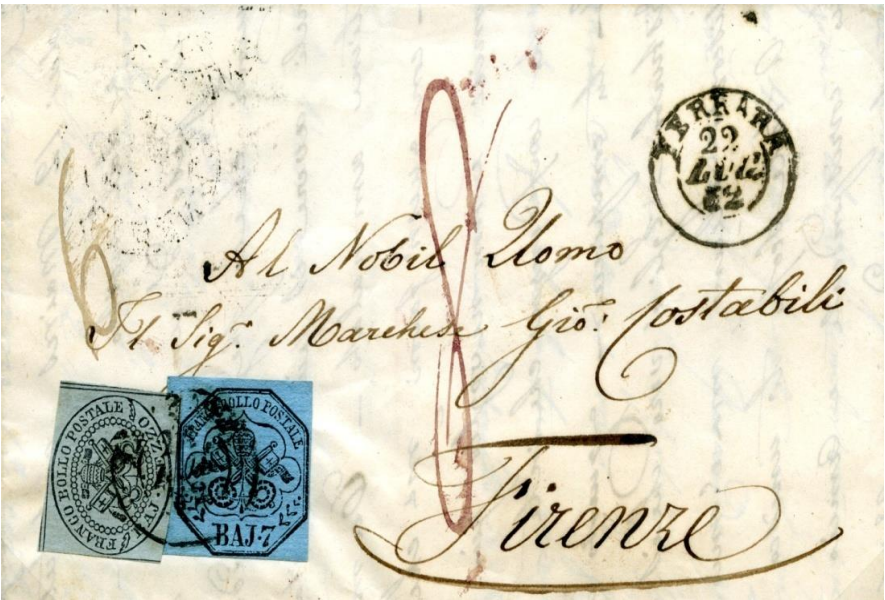 FERRARA
22
LUG
52
8
6
Al Nobil Uomo
Il Sig.r Marchese Gio: Costabili
Firenze
FRANCO BOLLO POSTALE
FRANCO BOLLO POSTALE
BAJ·7